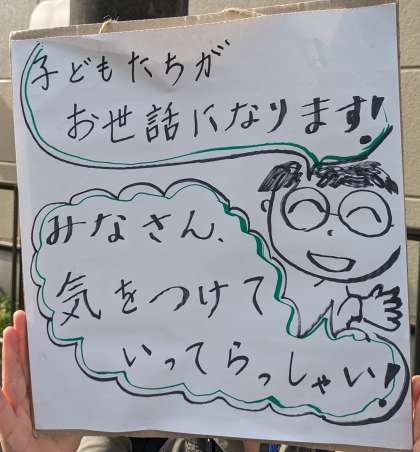 子どもたちが
お世話になります!
みなさん、
気をつけて
いってらっしゃい!